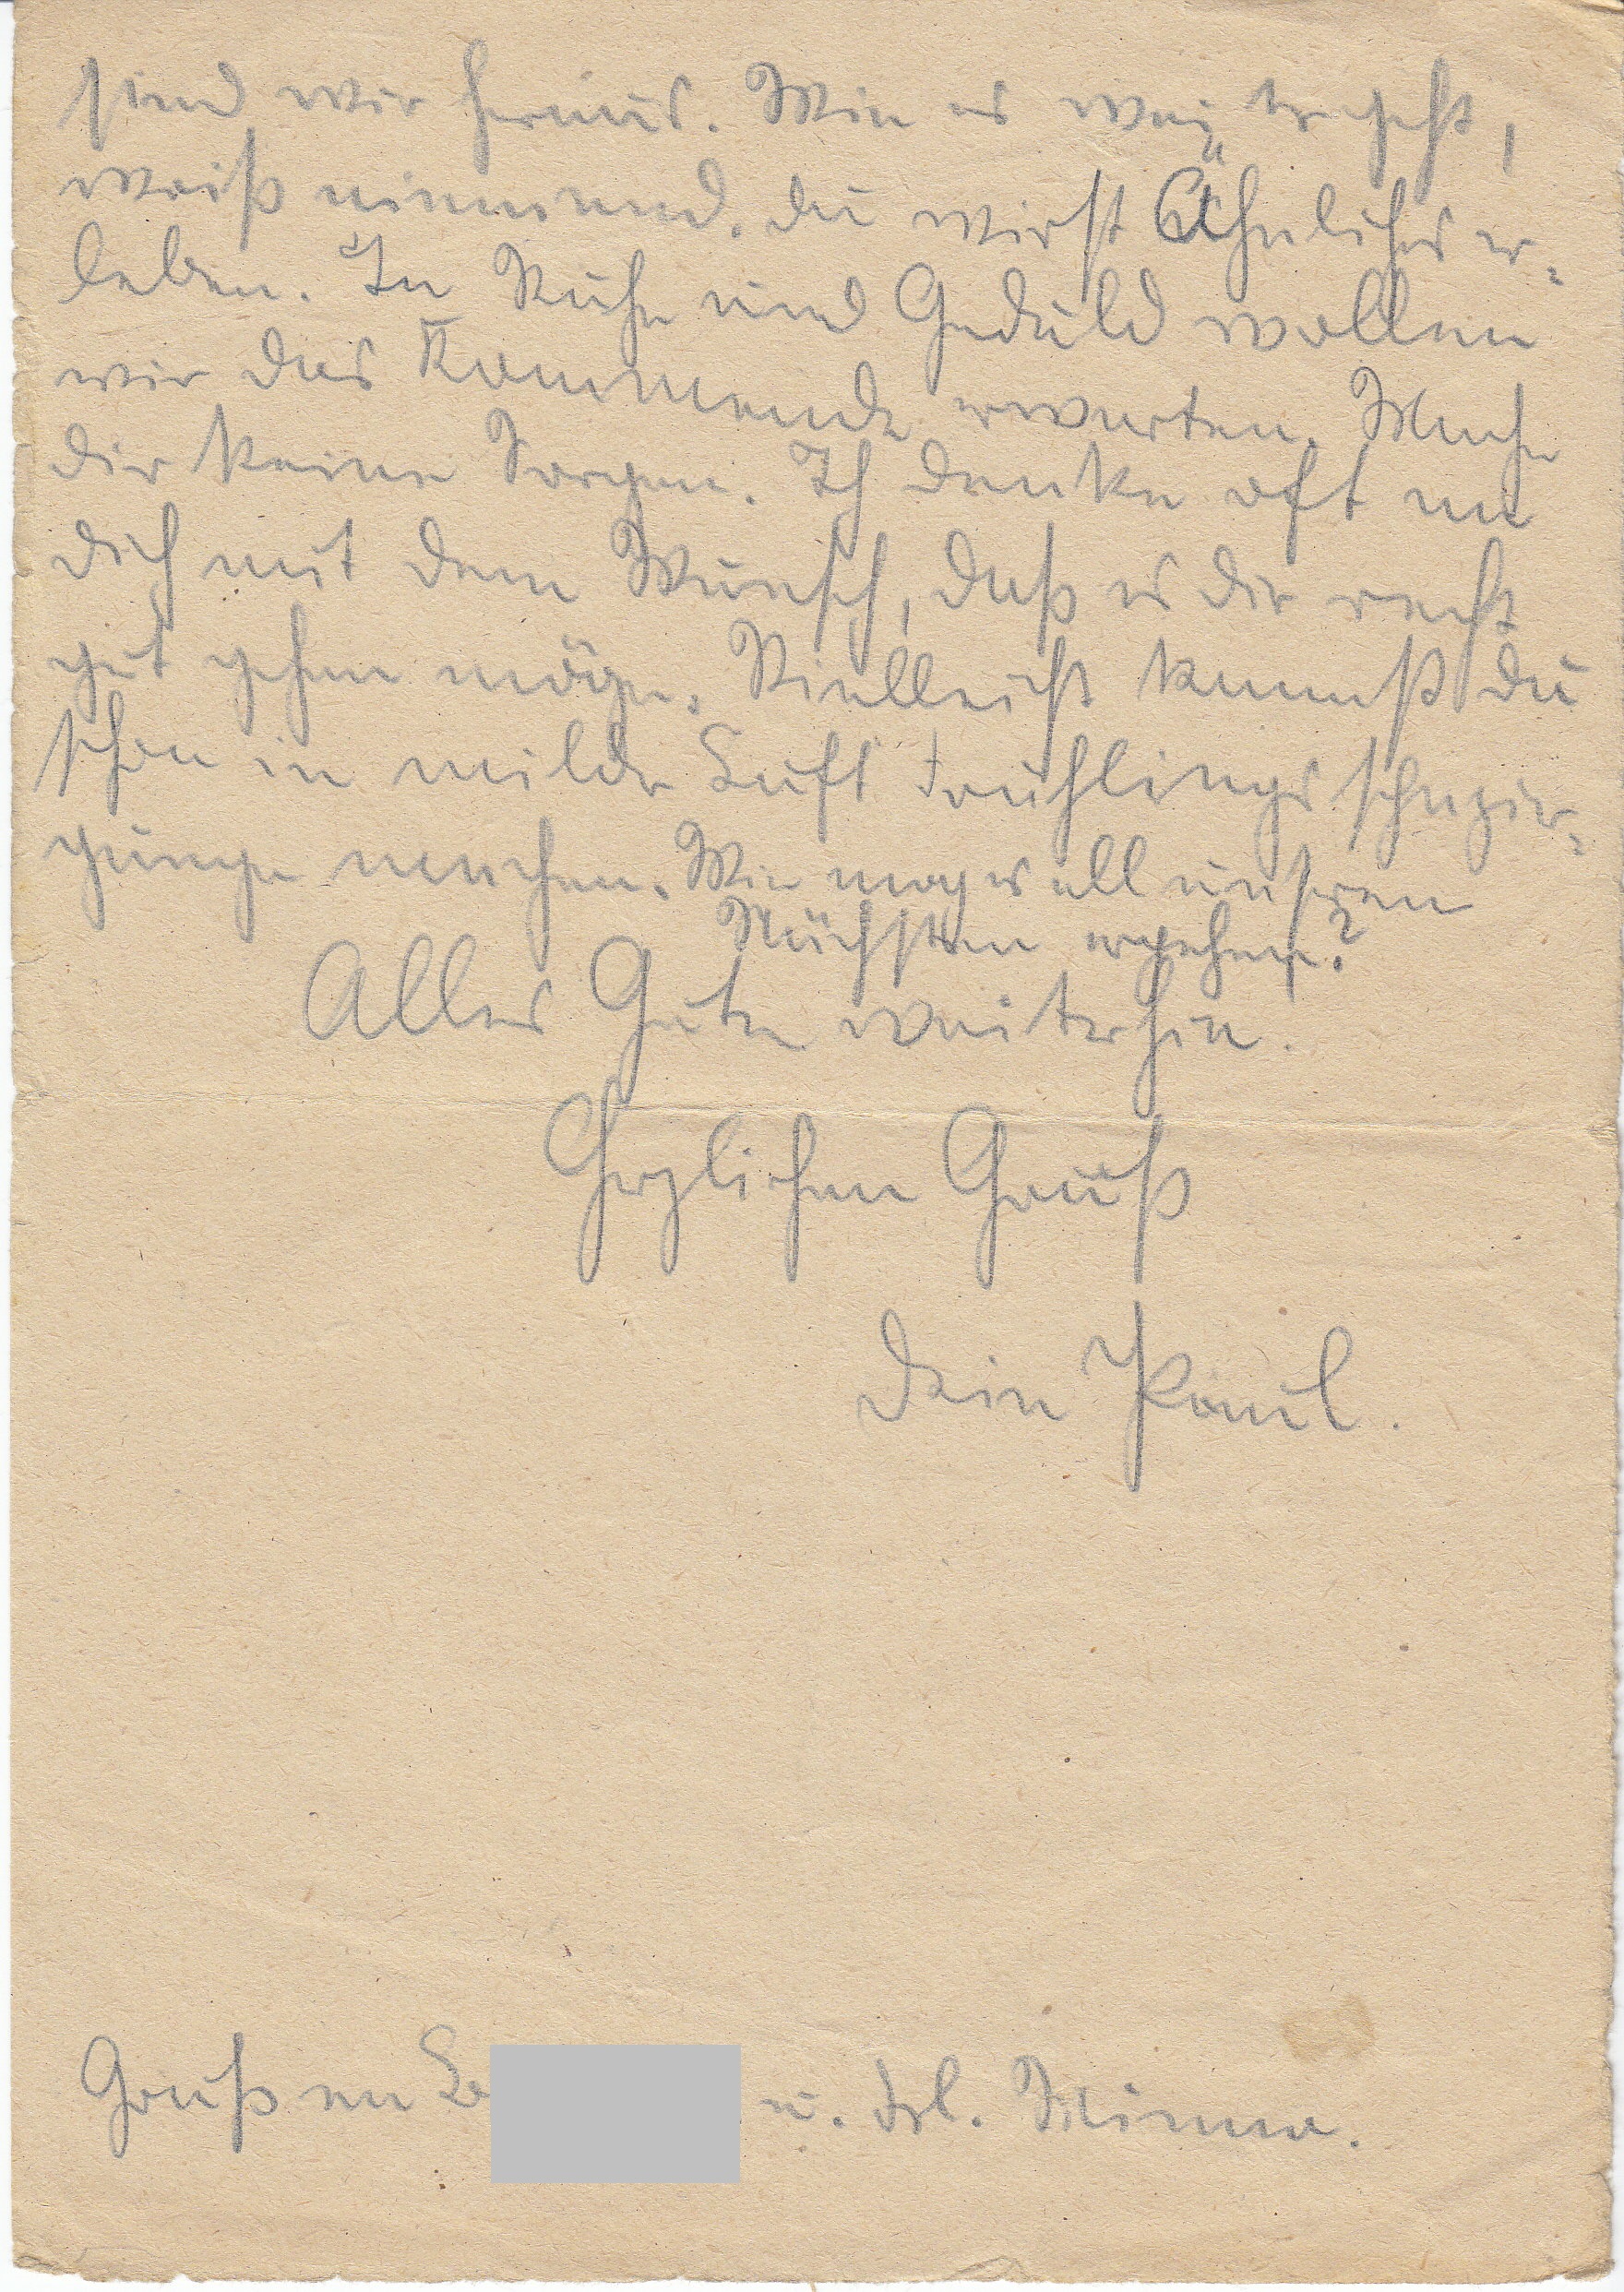 sind wir heraus. Wie es weitergeht,
weiß niemand. Du wirst Ähnliches er-
leben. In Ruhe und Geduld wollen
wir das Kommende erwarten. Mache
dir keine Sorgen. Ich denke oft an
dich mit dem Wunsch, daß es dir recht
gut gehen möge. Vielleicht kannst du
schon in milder Luft Frühlingsspazier-
gänge machen. Wie mag es all unseren
Nächsten ergehen?
Alles Gute weiterhin.
Herzlichen Gruß
Dein Paul.
Gruß an u. Frl. Minna.